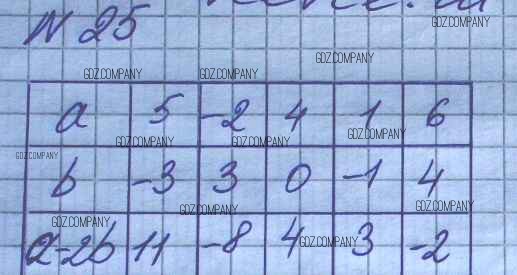 N 25
GDZ.COMPANY
GDZ.COMPANY
GDZ.COMPANY GDZ.COMPANY
a 5 -2 4 1 6
GDZ.COMPANY GDZ.COMPANY GDZ.COMPANY
GDZ.COMPANY
b -3 3 0 -1 4
GDZ.COMPANY GDZ.COMPANY
GDZ.COMPANY
a-2b 11 -8 4 3 -2
GDZ.COMPANY